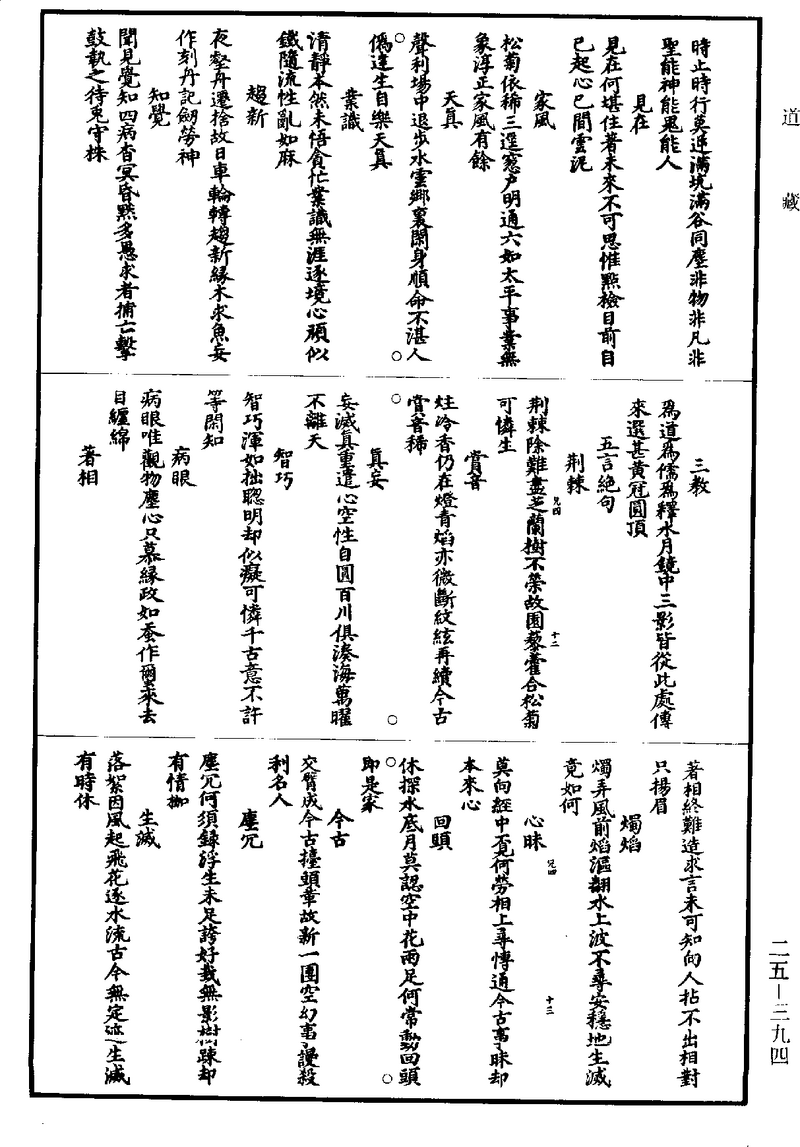 道藏
時止時行莫逃滿坑滿谷同塵非物非凡非
聖能神能鬼能人
見在
見在何堪住著未來不可思惟點檢目前自
己起心已間雲泥
家風
松菊依稀三逕窓戶明通六如太平事業無
象淳正家風有餘
天真
聲利場中退步水雲鄉裏閑身順命不湛人
僞達生自樂天真
業識
清靜本然未悟貪忙業識無涯逐境心頑似
鐵隨流性亂如麻
趨新
夜壑舟遷捨故日車輪轉趨新緣木求魚妄
作刻舟記劒勞神
知覺
聞見覺知四病杳冥昏黙多愚求者捕亡擊
鼓執之待兎守株
三教
爲道爲儒爲釋水月鏡中三影皆從此處傳
來選甚黄冠圓頂
五言絶句
荆棘
荆棘除難盡芝蘭樹不榮故園藜藿合松菊
可憐生
賞音
炷冷香仍在燈青焰亦微斷紋絃再續今古
賞音稀
真妄
妄滅真重遣心空性自圓百川俱湊海萬曜
不離天
智巧
智巧渾如拙聰明却似癡可憐千古意不許
等閑知
病眼
病眼唯觀物塵心只慕緣政如蚕作璽來去
目纏綿
著相
兄四
十二
著相終難造求言未可知向人拈不出相對
只揚眉
燭焰
燭弄風前焰漚翻水上波不尋安穩地生滅
竟如何
心昧
莫向經中覓何勞相上尋慱通今古事昧却
本來心
回頭
休探水底月莫認空中花兩足何常動回頭
即是家
今古
交臂成今古擡頭章故新一團空幻事謾殺
利名人
塵冗
塵冗何須録浮生未足誇好栽無影樹踈却
有情枷
生滅
落絮因風起飛花逐水流古今無定迹生滅
有時休
兄四
十三
二五—三九四